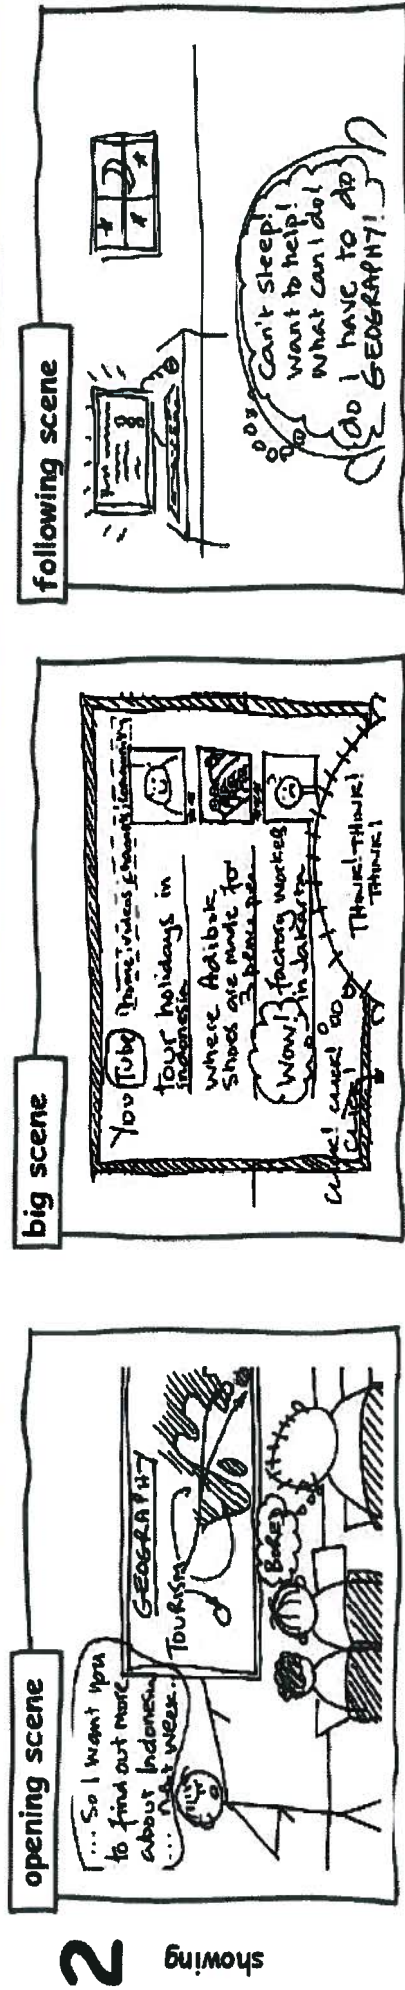 2
showing
opening scene
... So I want you
to find out more
about Indonesia
... next week...
GEOGRAPHY
TOURISM
BORED
big scene
YouTube home videos channels community
tour holidays in
indonesia
where Adibok
shoes are made for
3 pence
Wow! factory worker
in Jakarta
click! click!
click!
THINK! THINK!
THINK!
following scene
Can't sleep!
want to help!
what can I do!
do I have to do
GEOGRAPHY!